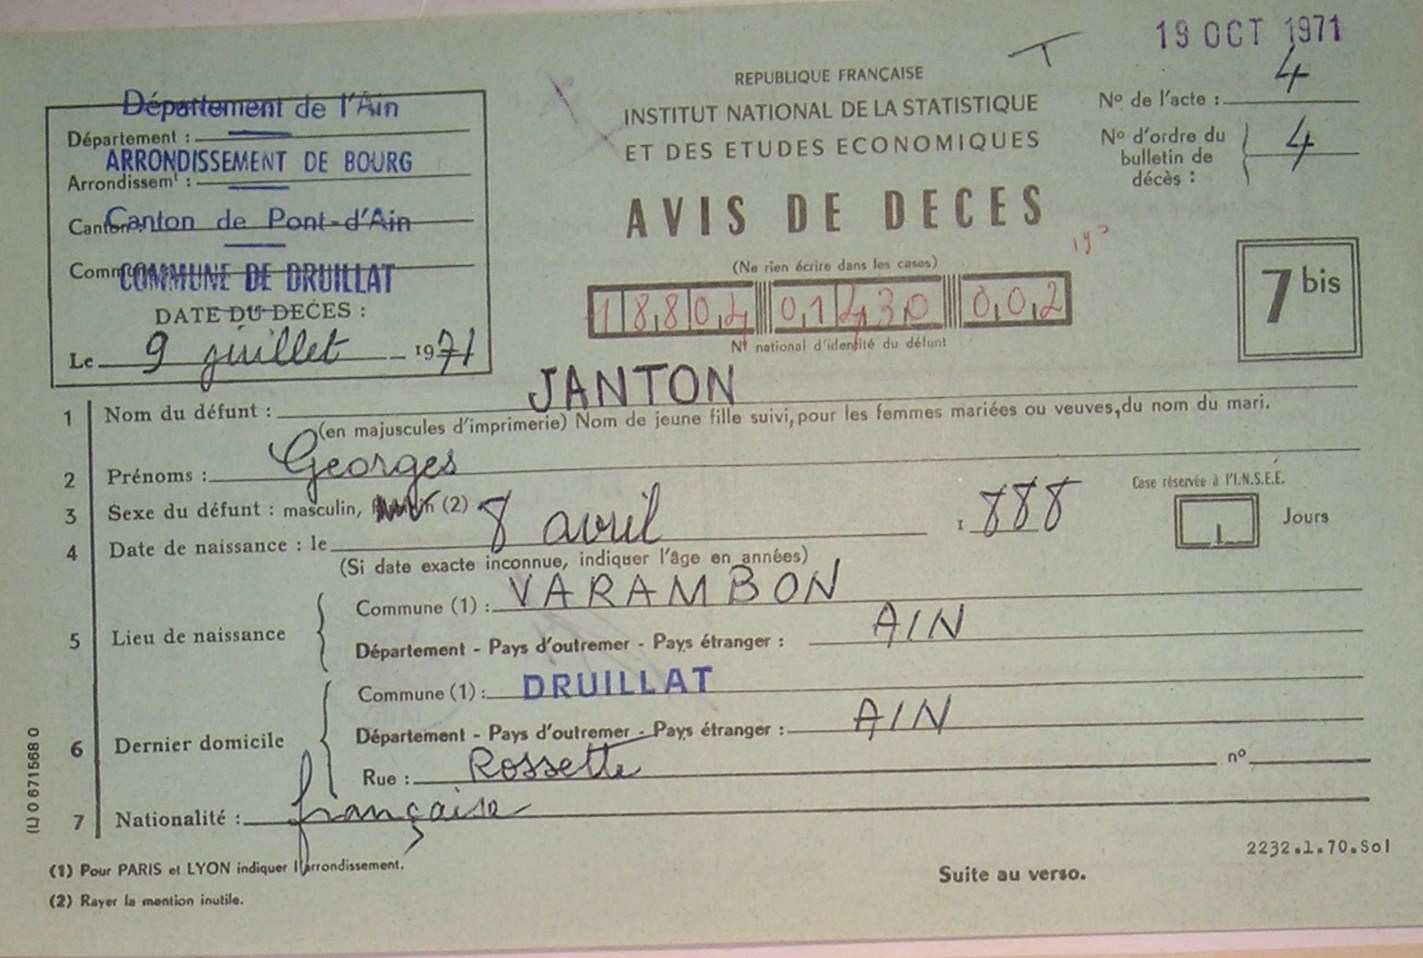 19 OCT 1971
T
REPUBLIQUE FRANÇAISE
INSTITUT NATIONAL DE LA STATISTIQUE
ET DES ETUDES ECONOMIQUES
AVIS DE DECES
Nº de l'acte : 4
Nº d'ordre du
bulletin de
décès : 4
Département de l'Ain
Département :
ARRONDISSEMENT DE BOURG
Arrondissemt :
Canton de Pont-d'Ain
COMMUNE DE DRUILLAT
DATE DU DECES :
Le 9 juillet 1971
(Ne rien écrire dans les cases)
1 8 8 0 4 0 1 4 3 0 0 0 2
Nº national d'identité du défunt
7 bis
1 Nom du défunt : JANTON
(en majuscules d'imprimerie) Nom de jeune fille suivi, pour les femmes mariées ou veuves, du nom du mari.
2 Prénoms : Georges
3 Sexe du défunt : masculin, (2)
Case réservée à l'I.N.S.E.E.
4 Date de naissance : le 8 avril 1888
1 Jours
(Si date exacte inconnue, indiquer l'âge en années)
5 Lieu de naissance
Commune (1) : VARAMBON
Département - Pays d'outremer - Pays étranger : AIN
6 Dernier domicile
Commune (1) : DRUILLAT
Département - Pays d'outremer - Pays étranger : AIN
Rue : Rossette nº
7 Nationalité : française
(1) Pour PARIS et LYON indiquer l'arrondissement.
(2) Rayer la mention inutile.
2232.1.70.Sol
Suite au verso.
(L) 0 671568 0